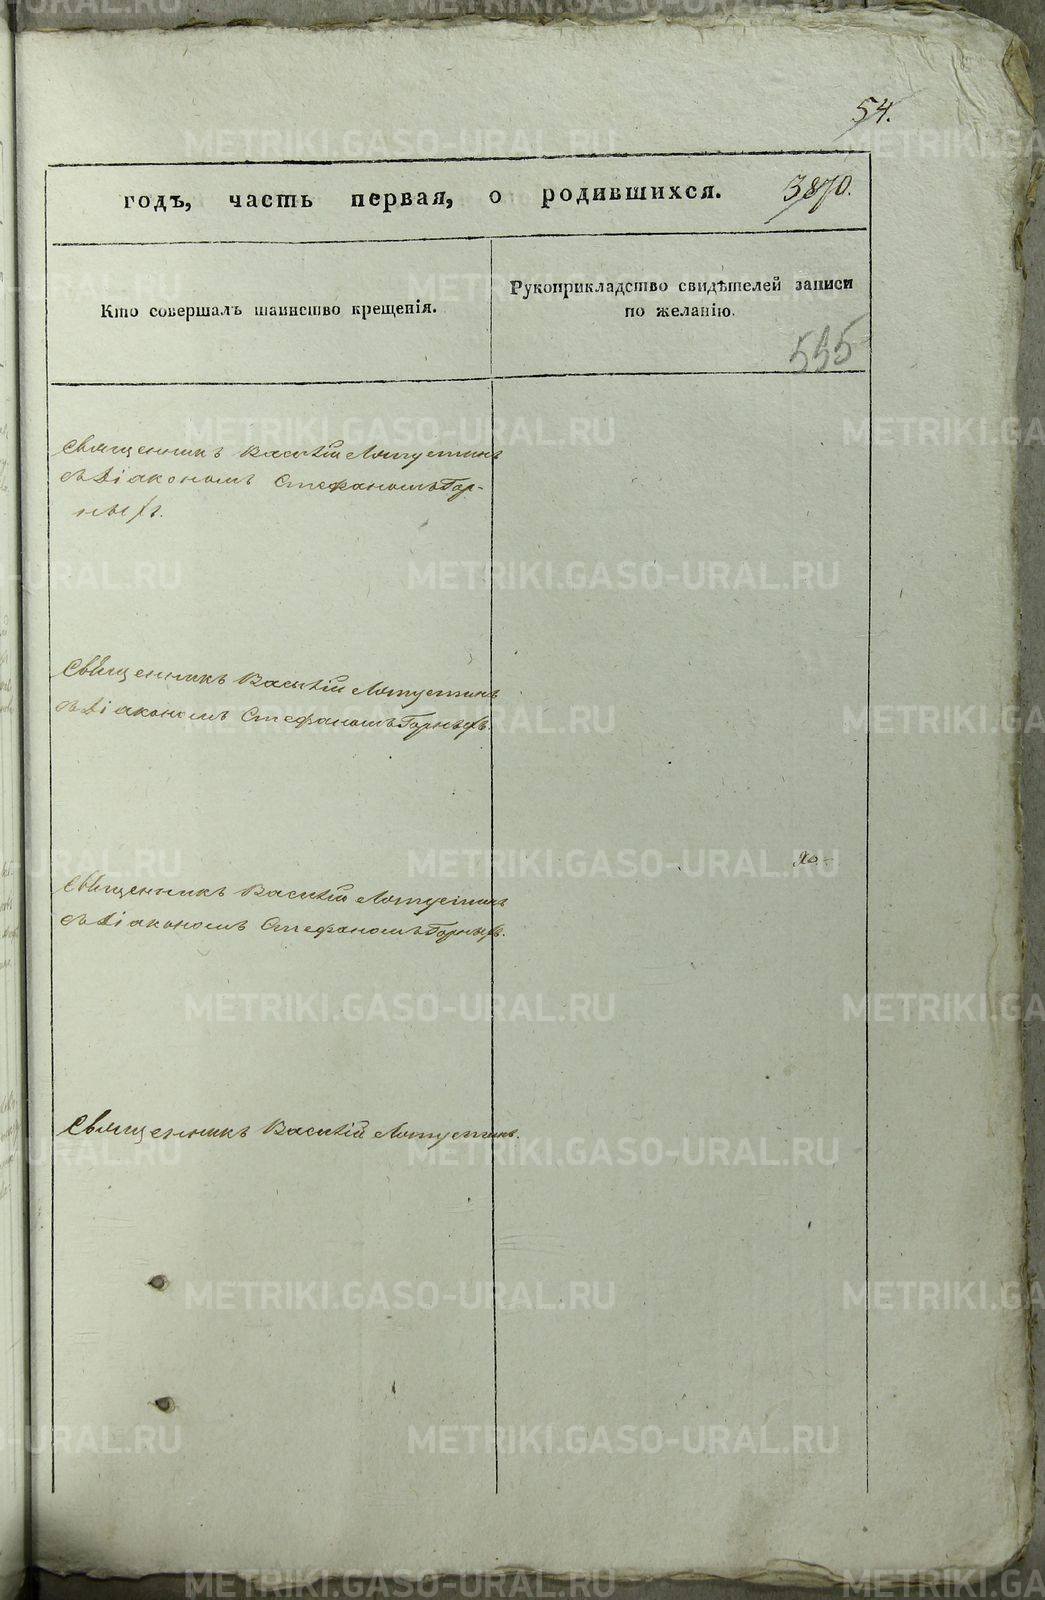 54.
годъ, часть первая, о родившихся. 3870.
Кто совершалъ таинство крещенія.
Рукоприкладство свидѣтелей записи
по желанію.
555
Священникъ Василій Лотустинъ
съ Діакономъ Стефаномъ Гор-
ныхъ.
Священникъ Василій Лотустинъ
съ Діакономъ Стефаномъ Горныхъ.
Священникъ Василій Лотустинъ
съ Діакономъ Стефаномъ Горныхъ.
Священникъ Василій Лотустинъ.
METRIKI.GASO-URAL.RU